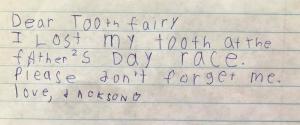 Dear Tooth fairy
I Lost my tooth at the
father's Day race.
Please don't forget me.
love, JACKSON